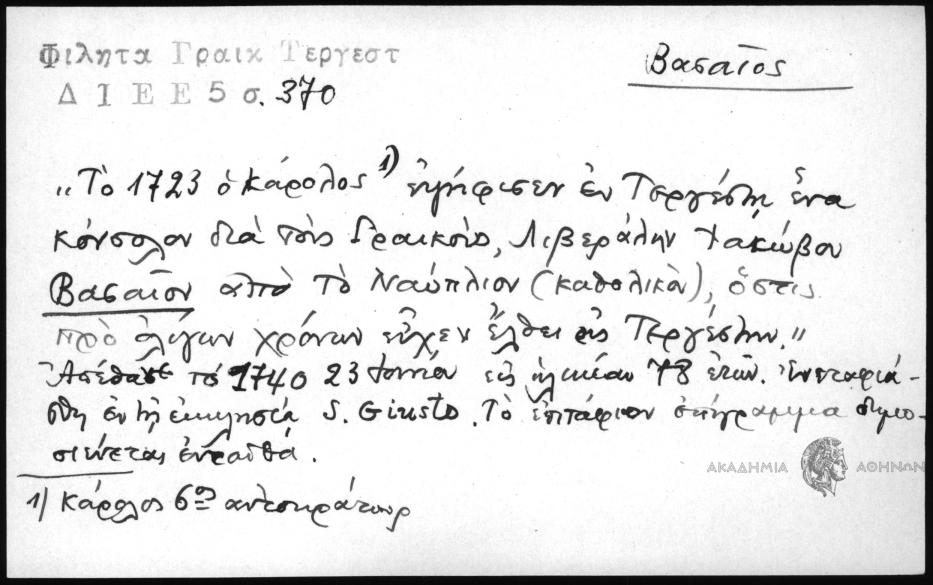 Φιλητα Γραικ Τεργεστ
Βασαῖος
Δ Ι Ε Ε 5 σ. 370
„Τὸ 1723 ὁ Κάρολος 1) ἐψήφισεν ἐν Τεργέστῃ ἕνα
κόνσολον διὰ τοὺς Γραικοὺς, Λιβεράλην Ἰακώβου
Βασαῖον ἀπὸ τὸ Ναύπλιον (καθολικὸν), ὅστις
πρὸ ὀλίγων χρόνων εἶχεν ἔλθει εἰς Τεργέστην.”
Ἀπέθανε τὸ 1740 23 εἰς ἡλικίαν 78 ἐτῶν. Ἐνεταφιά-
σθη ἐν τῇ ἐκκλησίᾳ S. Giusto. Τὸ ἐπιτάφιον ἐπίγραμμα δημο-
σιεύεται ἐνταῦθα.
ΑΚΑΔΗΜΙΑ ΑΘΗΝΩΝ
1) Κάρολος 6ος αὐτοκράτωρ